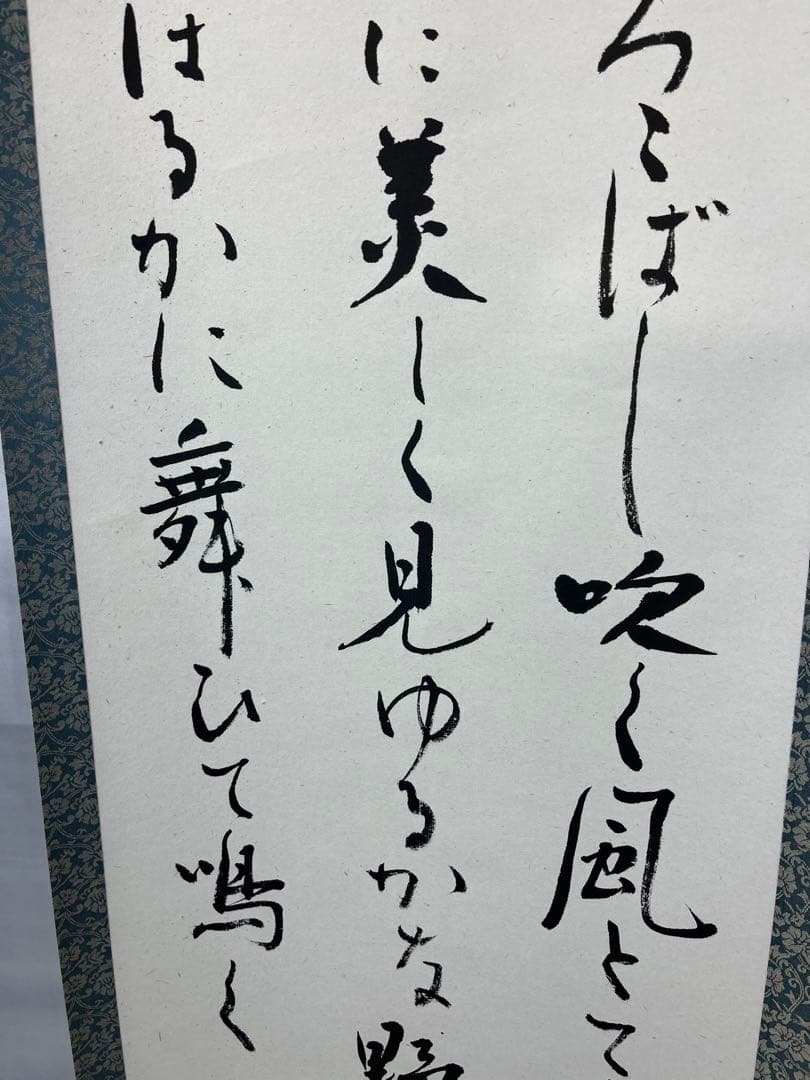 つこばし吹く風とて
に美しく見ゆるかな野
はるかに舞ひて鳴く